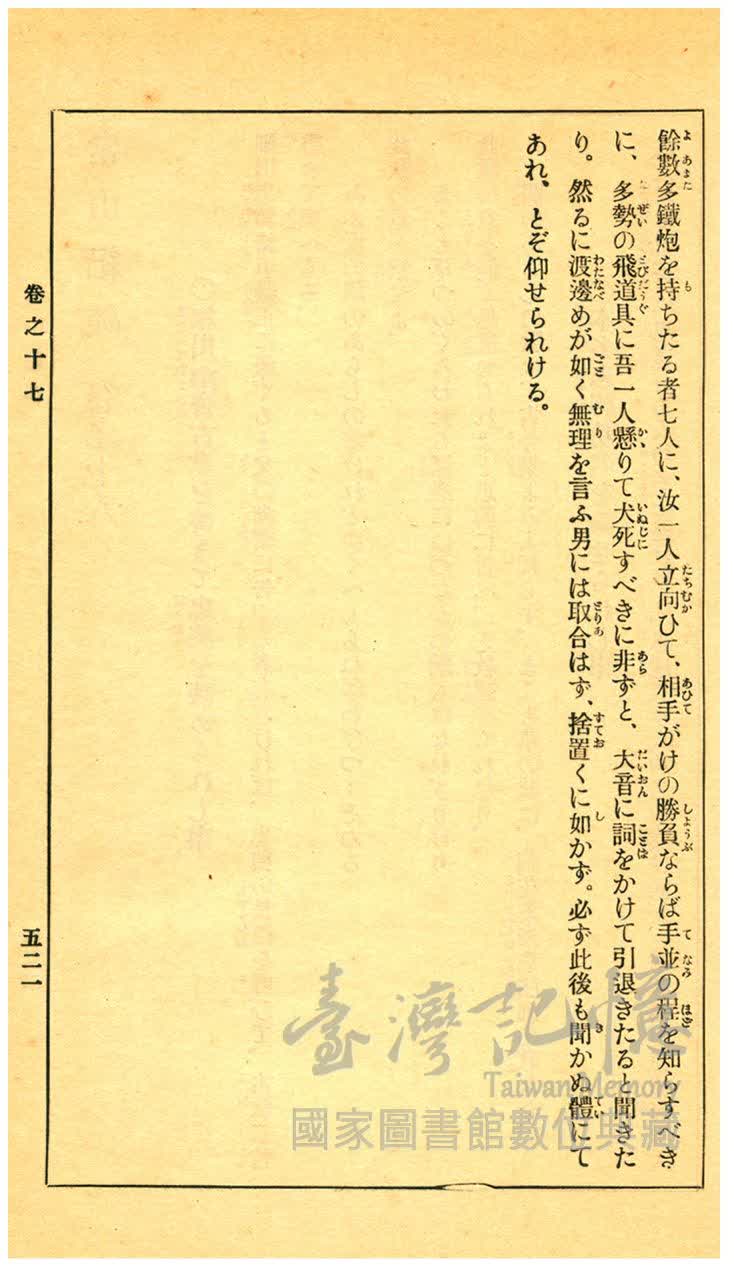 餘數多鐵炮を持ちたる者七人に、汝一人立向ひて、相手がけの勝負ならば手並の程を知らすべき
に、多勢の飛道具に吾一人懸りて犬死すべきに非ずと、大音に詞をかけて引退きたると聞きた
り。然るに渡邊めが如く無理を言ふ男には取合はず、捨置くに如かず。必ず此後も聞かぬ體にて
あれ、とぞ仰せられける。
卷之十七
五二一
臺灣記憶
Taiwan Memory
國家圖書館數位典藏